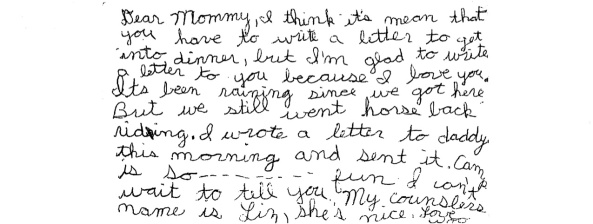 Dear Mommy, I think it's mean that
you have to write a letter to get
into dinner, but I'm glad to write
a letter to you because I love you.
Its been raining since we got here
But we still went horse back
riding. I wrote a letter to daddy
this morning and sent it. Cam
is so---------- fun I can't
wait to tell you. My counslers
name is Liz, she's nice. Love